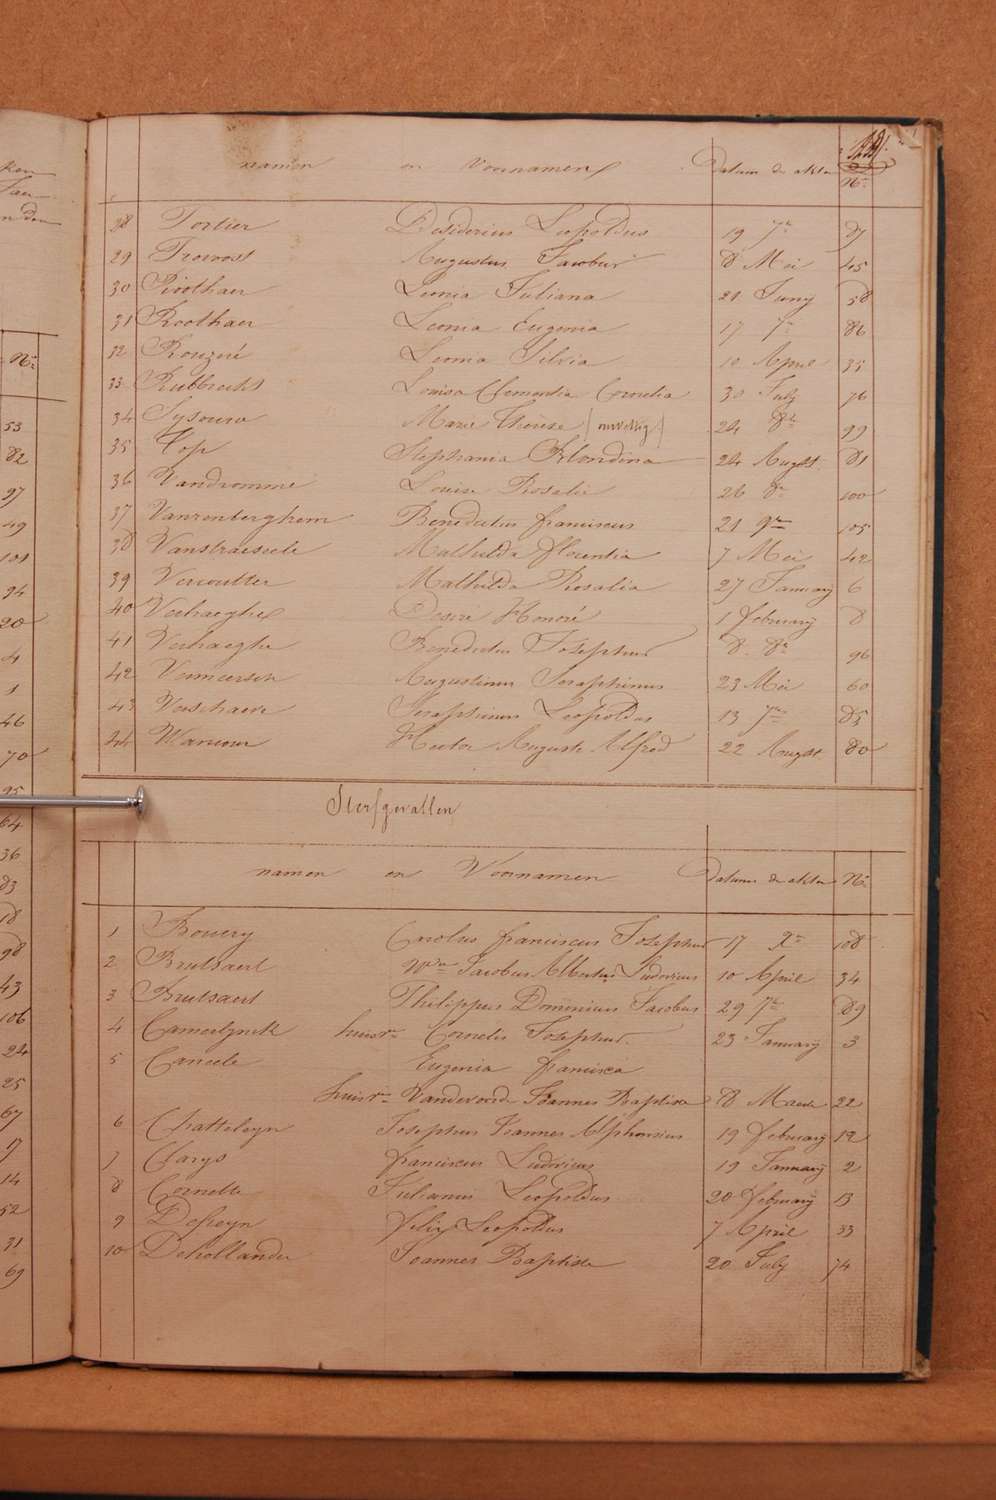 namen en Voornamen Datum der akten Nr
28 Portier Desiderius Leopoldus 19 7r 87
29 Provoost Augustus Jacobus 8 Mei 45
30 Roothaer Leonia Juliana 21 Juny 58
31 Roothaer Leonia Eugenia 17 7r 86
32 Rouzeré Leonia Silvia 10 April 35
33 Rubbrecht Louisa Clementia Cornelia 30 July 76
34 Sysouw Marie Therese (onwettig) 24 8r 99
35 Top Stephania Blondina 24 August 81
36 Vandromme Louise Rosalie 26 8r 100
37 Vanrenberghem Benedictus franciscus 21 9re 105
38 Vanstraeseele Mathilda florentia 7 Mei 42
39 Vercoutter Mathilda Rosalia 27 January 6
40 Verhaeghe Desire Honoré 1 february 8
41 Verhaeghe Benedictus Josephus 8 8r 96
42 Vermeersch Augustinus Seraphinus 23 Mei 60
43 Verschaeve Seraphinus Leopoldus 13 7re 85
44 Warcour Hector Auguste Alfred 22 August 80
Sterfgevallen
namen en Voornamen Datum der akten Nr
1 Bouery Carolus franciscus Josephus 17 Xr 108
2 Brutsaert Wde Jacobus Albertus Ludovicus 10 April 34
3 Brutsaert Philippus Dominicus Jacobus 29 7r 89
4 Camerlynck huisvr Cornelis Josephus 23 January 3
5 Caneele Eugenia francisca
huisvr Vandevoorde Joannes Baptiste 8 Maert 22
6 Chatteleyn Josephus Joannes Alphonsius 19 february 12
7 Clarys franciscus Ludovicus 19 January 2
8 Cornette Julianus Leopoldus 20 february 13
9 Defreyn felix Leopoldus 7 April 33
10 Dehollander Joannes Baptiste 20 July 74